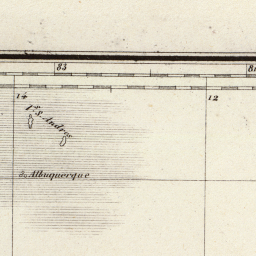 83
8
14
12
I.s S. Andres
Albuquerque